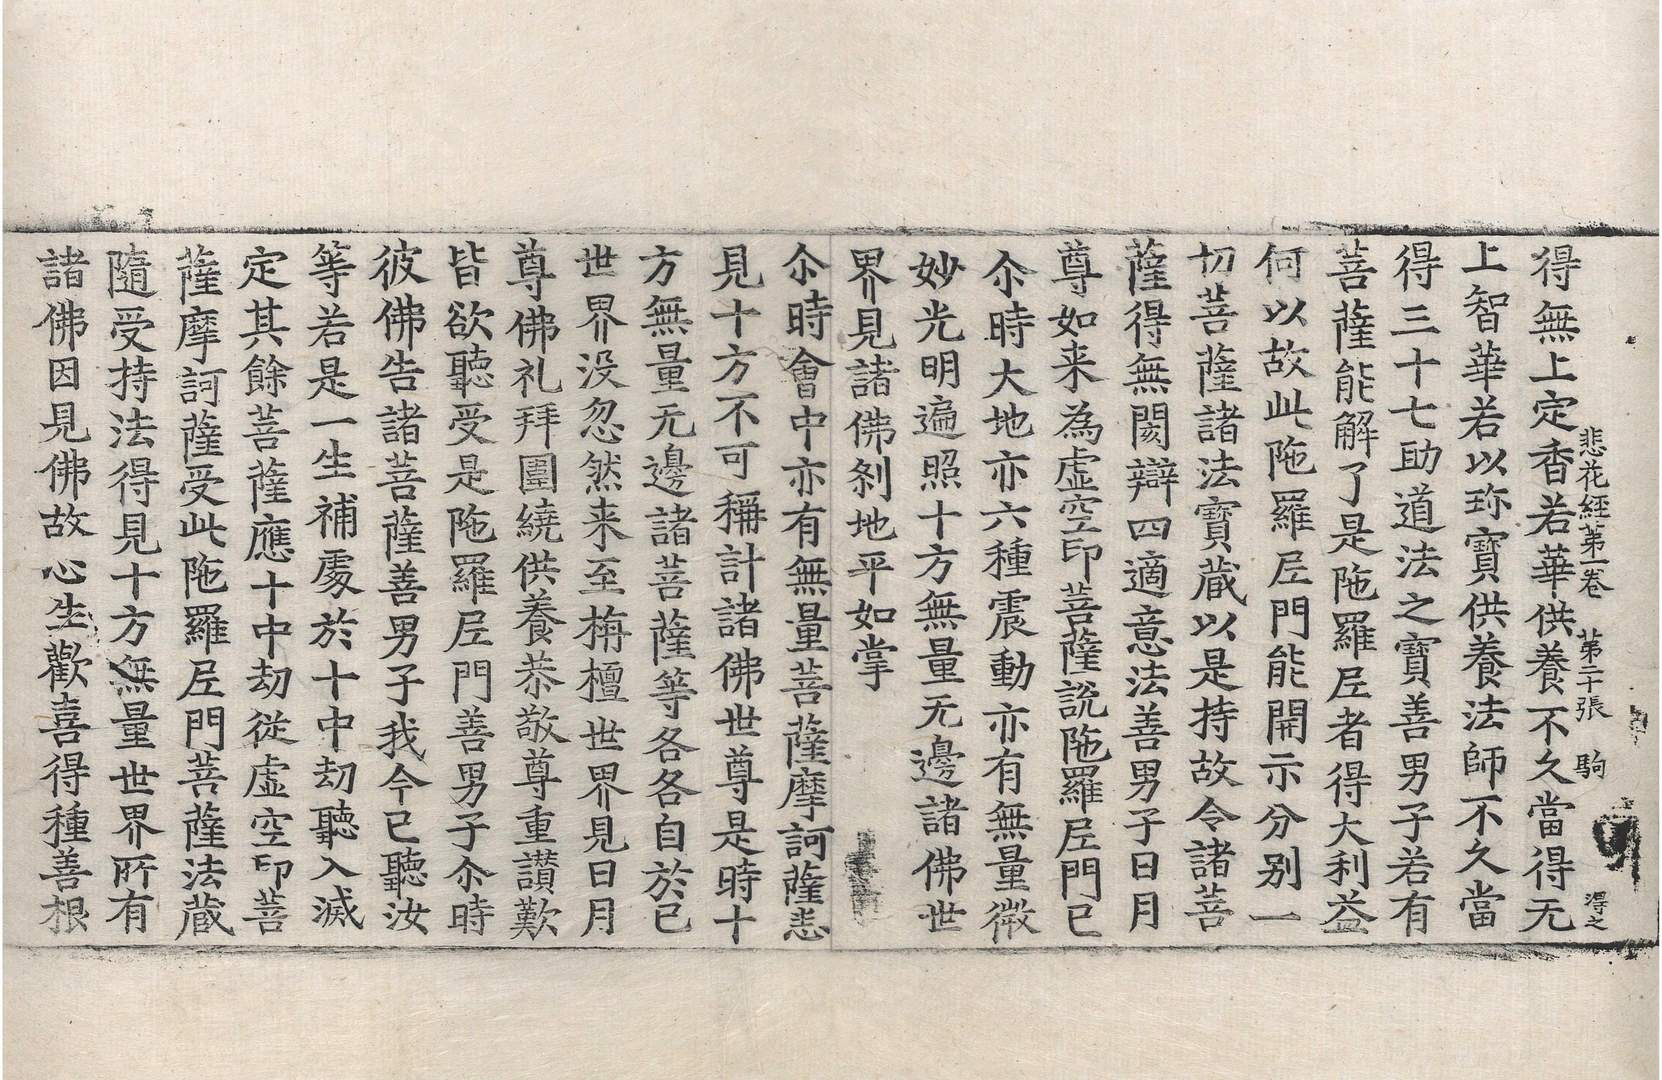 悲花經第一卷 第二十張 駒 得之
得無上定香若華供養不久當得无
上智華若以珎寶供養法師不久當
得三十七助道法之寶善男子若有
菩薩能解了是陁羅尼者得大利益
何以故此陁羅尼門能開示分别一
切菩薩諸法寶蔵以是持故令諸菩
薩得無閡辯四適意法善男子日月
尊如来為虛空印菩薩說陁羅尼門已
尒時大地亦六種震動亦有無量微
妙光明遍照十方無量无邊諸佛世
界見諸佛刹地平如掌
尒時會中亦有無量菩薩摩訶薩悉
見十方不可稱計諸佛世尊是時十
方無量无邊諸菩薩等各各自於已
世界没忽然来至栴檀世界見日月
尊佛礼拜圍繞供養恭敬尊重讃歎
皆欲聽受是陁羅尼門善男子尒時
彼佛告諸菩薩善男子我今已聽汝
等若是一生補處於十中劫聽入滅
定其餘菩薩應十中劫從虛空印菩
薩摩訶薩受此陁羅尼門菩薩法蔵
隨受持法得見十方無量世界所有
諸佛因見佛故心生歡喜得種善根